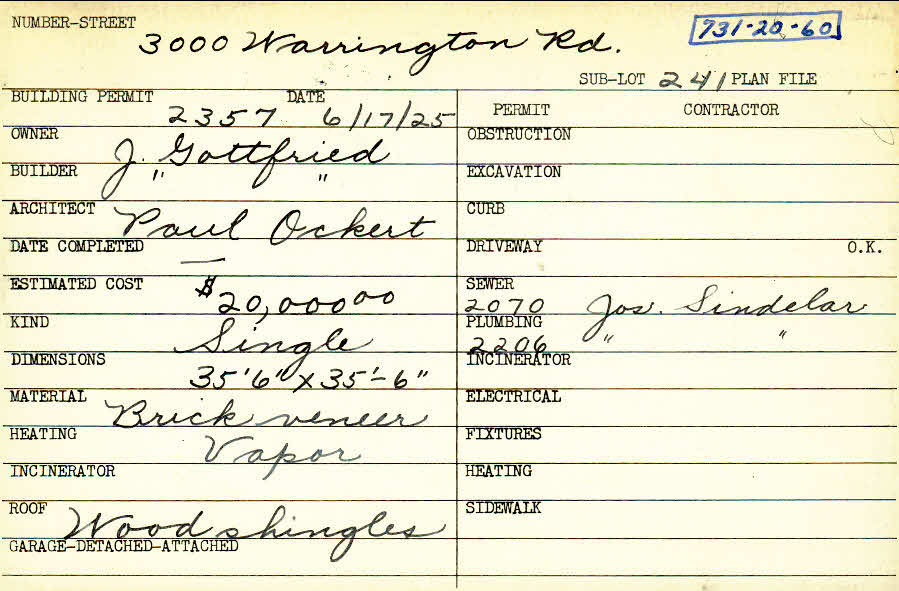 NUMBER-STREET 3000 Warrington Rd. 731-20-60
SUB-LOT 241 PLAN FILE
BUILDING PERMIT 2357 DATE 6/17/25
OWNER J. Gottfried
BUILDER " "
ARCHITECT Paul Ockert
DATE COMPLETED —
ESTIMATED COST $20,000 00
KIND Single
DIMENSIONS 35'6" x 35'-6"
MATERIAL Brick veneer
HEATING Vapor
INCINERATOR
ROOF Wood shingles
GARAGE-DETACHED-ATTACHED
PERMIT CONTRACTOR
OBSTRUCTION
EXCAVATION
CURB
DRIVEWAY O.K.
SEWER 2070 Jos. Sindelar
PLUMBING 2206 " "
INCINERATOR
ELECTRICAL
FIXTURES
HEATING
SIDEWALK